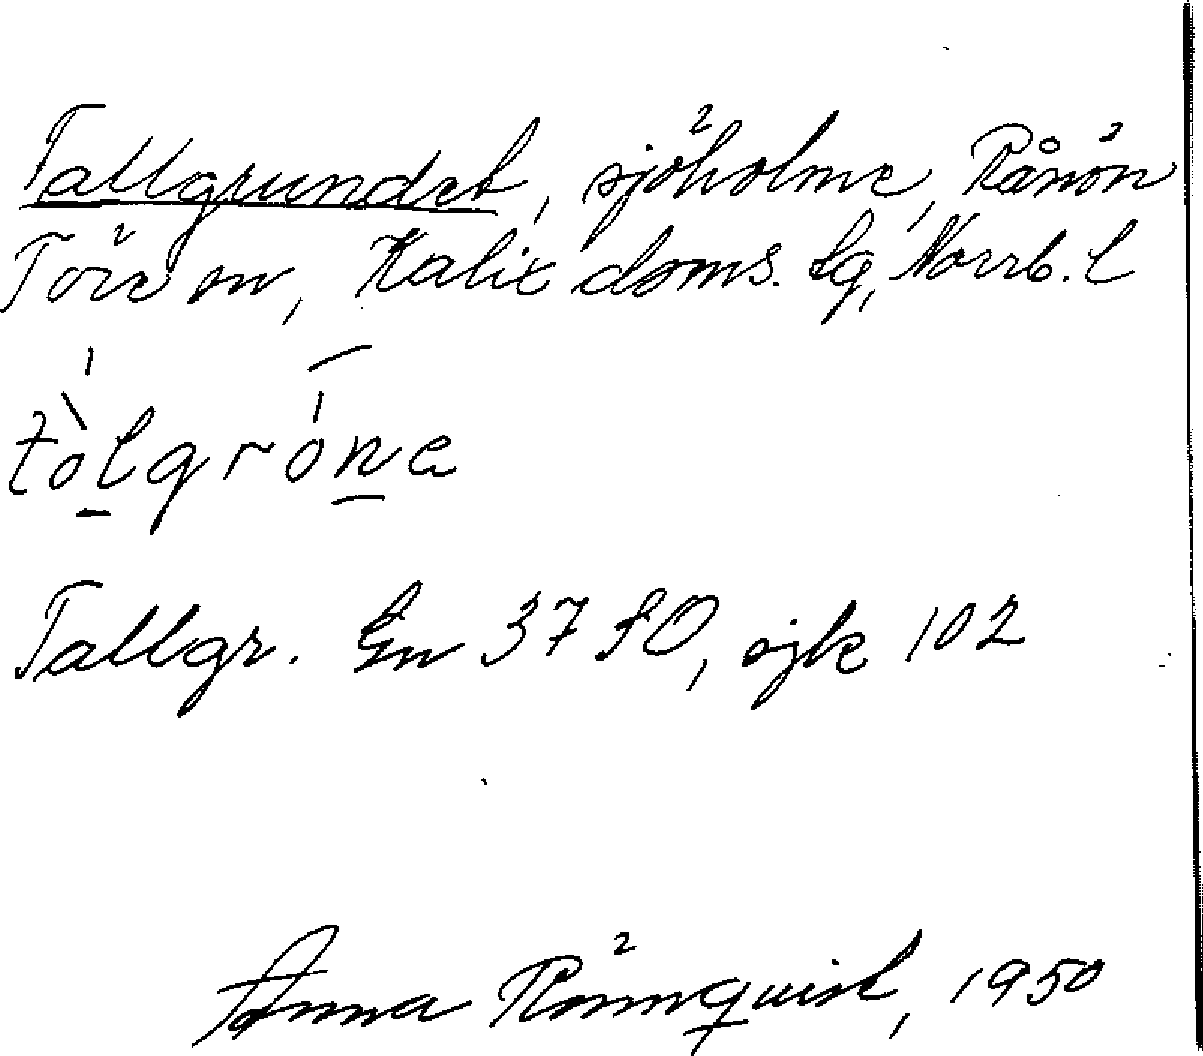 Tallgrundet, sjöholme, Rånön
Töre sn, Kalix doms. lg, Norrb. l
tòlgróne
Tallgr. En 37 SO, sjk 102
Anna Rönnquist, 1950